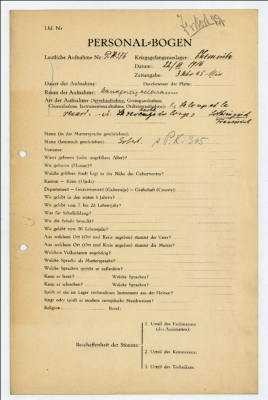 Lfd. Nr
PERSONAL-BOGEN
Lautliche Aufnahme Nr: P.K. 316 Kriegsgefangenenlager: Chemnitz
Datum:
Zeitangabe:
Dauer der Aufnahme: Durchmesser der Platte:
Raum der Aufnahme:
Art der Aufnahme (Sprechaufnahme, Gesangsaufnahme,
Choraufnahme, Instrumentenaufnahme, Orchesteraufnahme): Le loup et le
renard.
Name (in der Muttersprache geschrieben):
Name (lateinisch geschrieben): P.K. 305
Vorname:
Wann geboren (oder ungefähres Alter)?
Wo geboren (Heimat)?
Welche größere Stadt liegt in der Nähe des Geburtsortes?
Kanton — Kreis (Ujezd):
Department — Gouvernement (Gubernija) — Grafschaft (County):
Wo gelebt in den ersten 6 Jahren?
Wo gelebt vom 7. bis 20. Lebensjahr?
Was für Schulbildung?
Wo die Schule besucht?
Wo gelebt vom 20. Lebensjahr?
Aus welchem Ort (Ort und Kreis angeben) stammt der Vater?
Aus welchem Ort (Ort und Kreis angeben) stammt die Mutter?
Welchem Volksstamm angehörig?
Welche Sprache als Muttersprache?
Welche Sprachen spricht er außerdem?
Kann er lesen? Welche Sprachen?
Kann er schreiben? Welche Sprachen?
Spielt er ein im Lager vorhandenes Instrument aus der Heimat?
Singt oder spielt er modern europäische Musikweisen?
Religion: Beruf:
1. Urteil des Fachmannes
(des Assistenten):
Beschaffenheit der Stimme:
2. Urteil des Kommissars:
3. Urteil des Technikers: